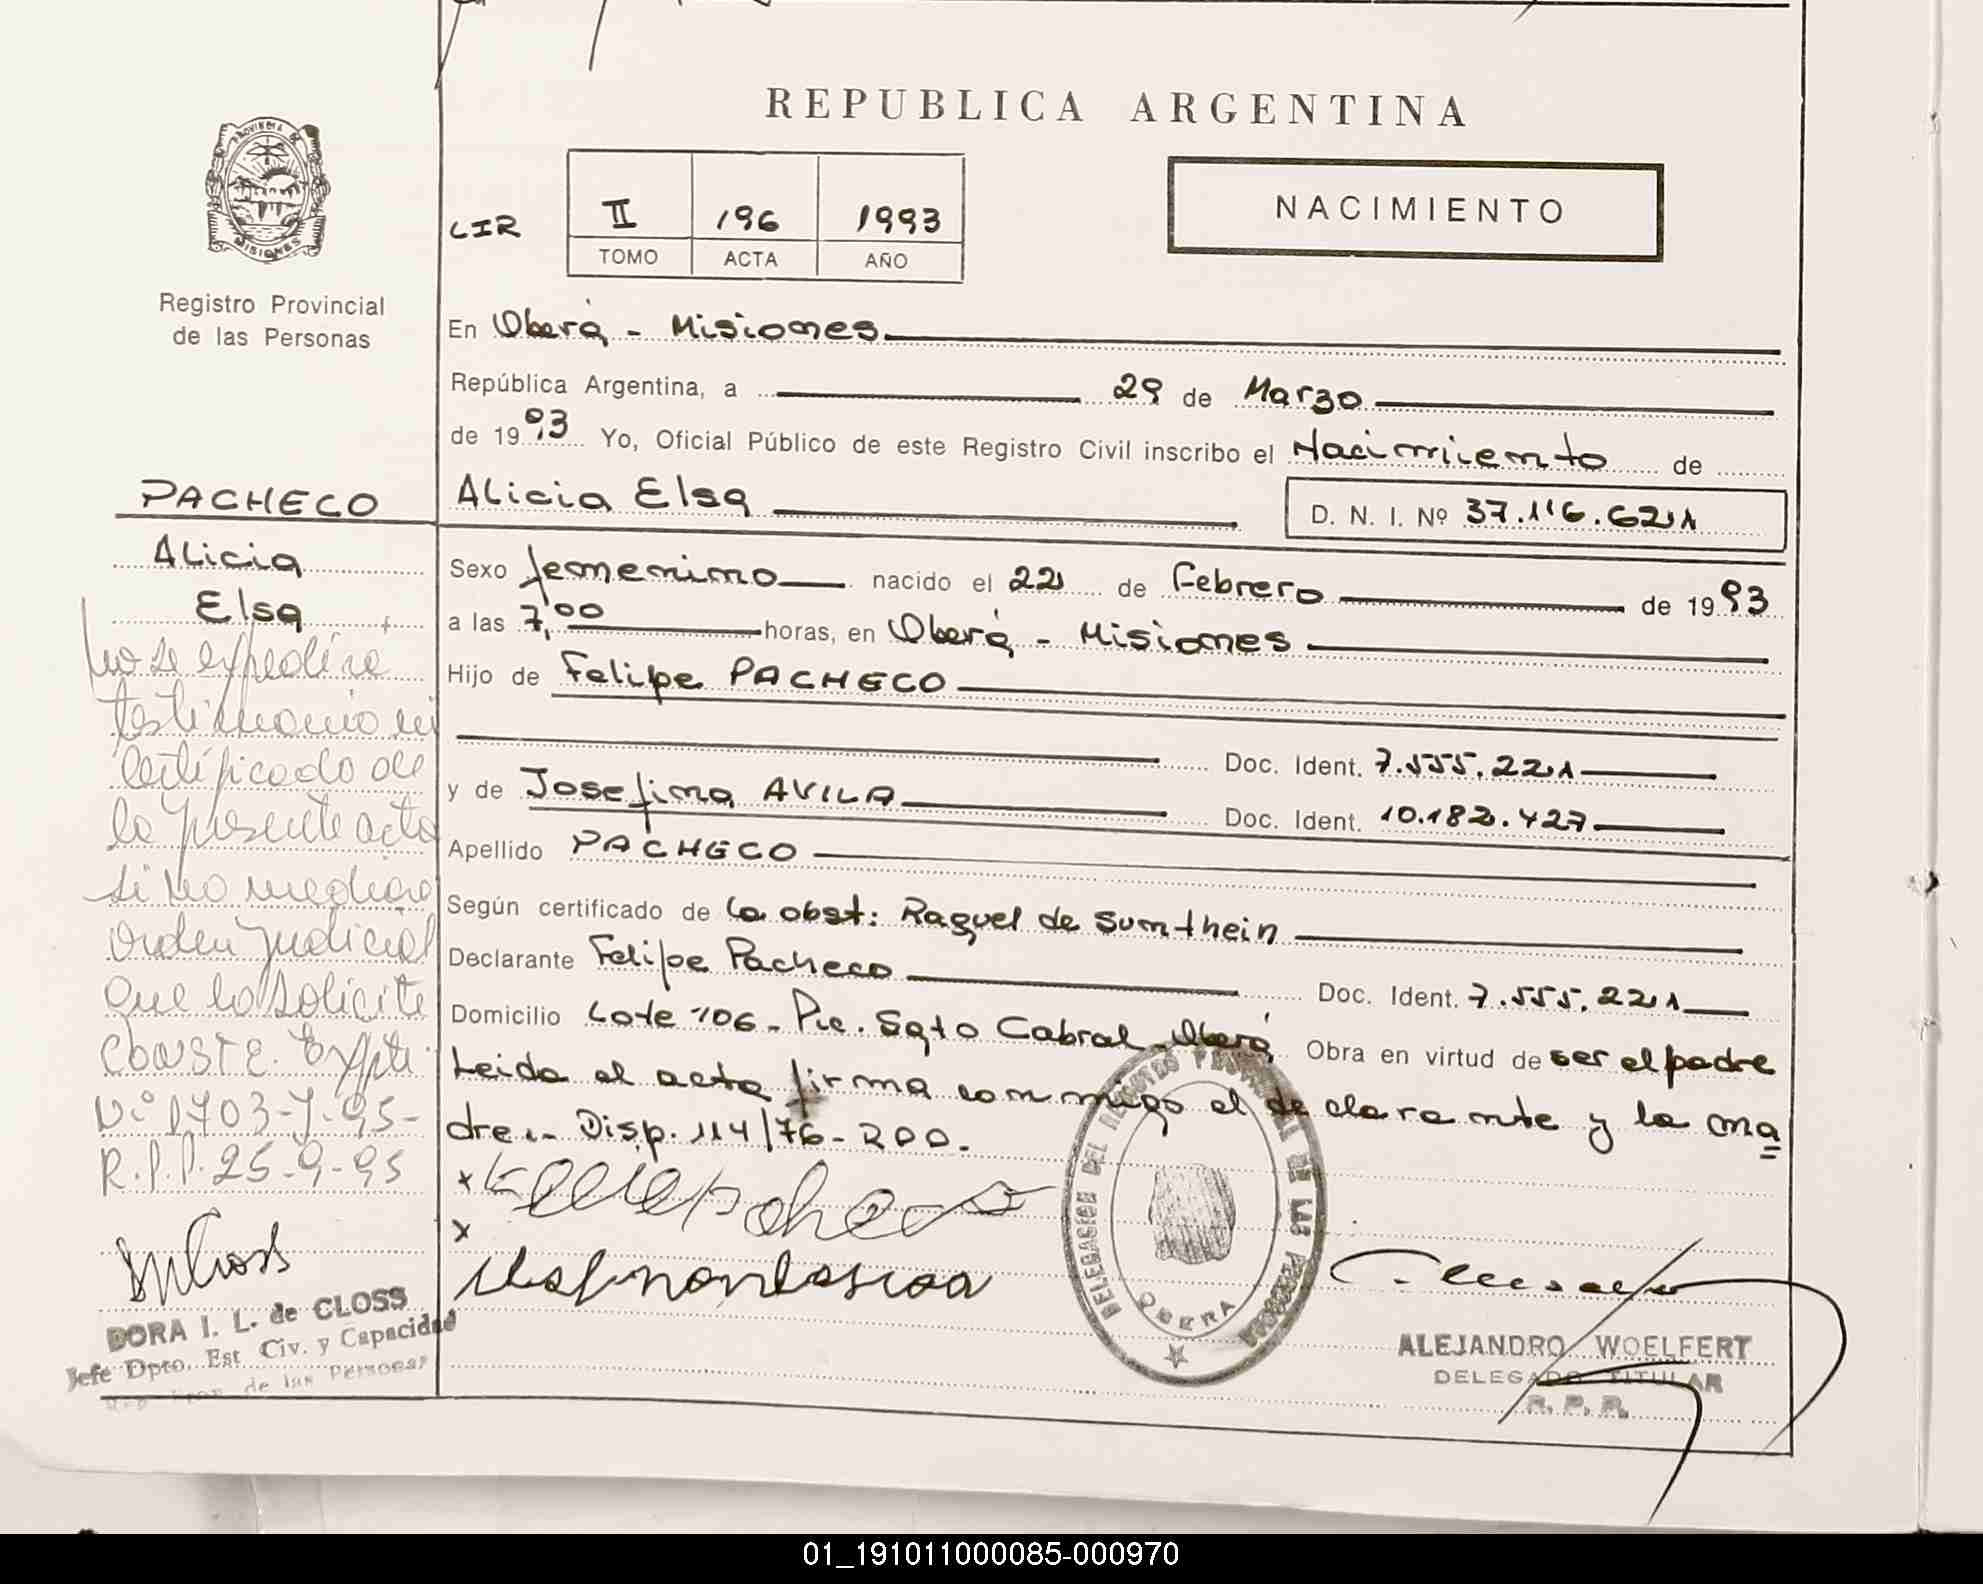 REPUBLICA ARGENTINA
PROVINCIA DE
MISIONES
Registro Provincial
de las Personas
NACIMIENTO
CIR II 196 1993
TOMO ACTA AÑO
En Oberá - Misiones
República Argentina, a 29 de Marzo
de 1993 Yo, Oficial Público de este Registro Civil inscribo el Nacimiento de
Alicia Elsa D. N. I. Nº 37.116.621
PACHECO
Alicia
Elsa
Sexo femenino nacido el 22 de Febrero de 1993
a las 7,00 horas, en Oberá - Misiones
Hijo de Felipe PACHECO
Doc. Ident. 7.555.221
y de Josefina AVILA Doc. Ident. 10.182.427
Apellido PACHECO
Según certificado de la obst: Raquel de Sumthein
Declarante Felipe Pacheco Doc. Ident. 7.555.221
Domicilio Lote 106 - Pje. Sgto Cabral - Oberá Obra en virtud de ser el padre
Leida el acta firma conmigo el declarante y la ma
dre.- Disp. 114/76 - 200.
No se expedirá
testimonio ni
certificado de
la presente acta
si no mediare
Orden Judicial
que lo solicite
CONSTE. Expte.
Nº 1703-J-95-
R.P.P. 25-9-95
DORA I. L. de CLOSS
Jefe Dpto. Est. Civ. y Capacidad
de las Personas
DELEGACION DEL REGISTRO PROVINCIAL DE LAS PERSONAS
OBERA
ALEJANDRO WOELFERT
DELEGADO TITULAR
R. P. P.
01_191011000085-000970